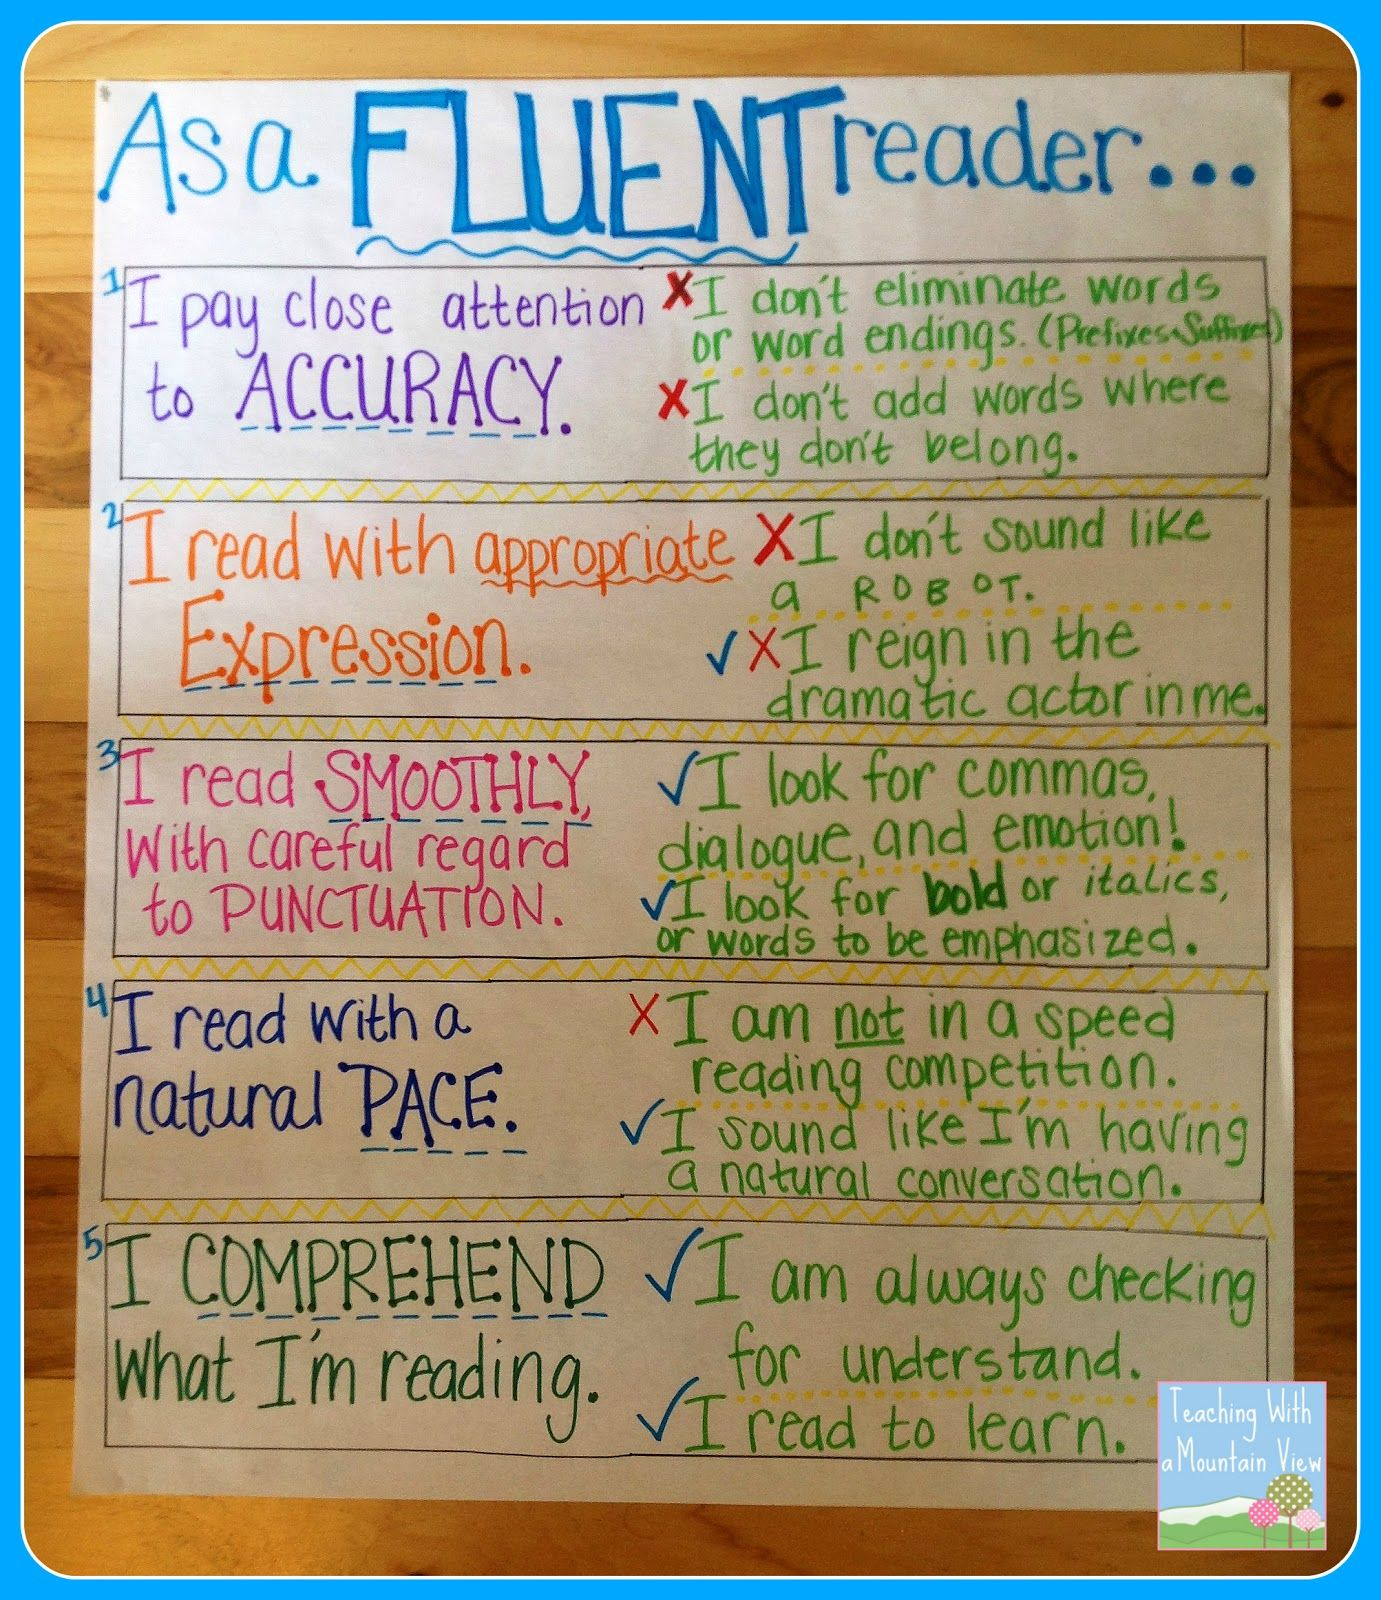 As a FLUENT reader...
1 I pay close attention
to ACCURACY.
X I don't eliminate words
or word endings. (Prefixes & Suffixes)
X I don't add words where
they don't belong.
2 I read with appropriate
Expression.
X I don't sound like
a ROBOT.
✓ X I reign in the
dramatic actor in me.
3 I read SMOOTHLY,
with careful regard
to PUNCTUATION.
✓ I look for commas,
dialogue, and emotion!
✓ I look for bold or italics,
or words to be emphasized.
4 I read with a
natural PACE.
X I am not in a speed
reading competition.
✓ I sound like I'm having
a natural conversation.
5 I COMPREHEND
what I'm reading.
✓ I am always checking
for understand.
✓ I read to learn.
Teaching With
a Mountain View